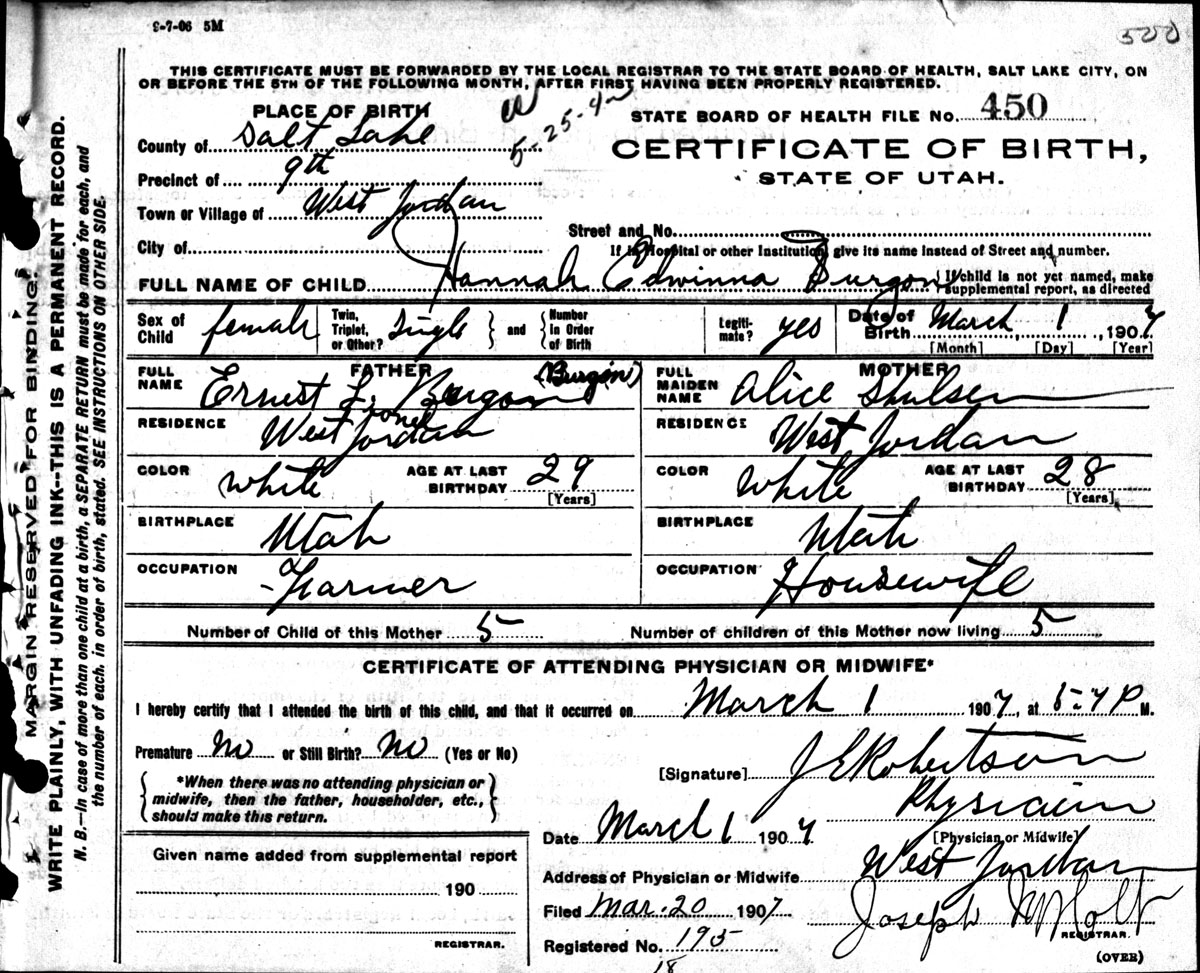 9-7-06 5M
500
THIS CERTIFICATE MUST BE FORWARDED BY THE LOCAL REGISTRAR TO THE STATE BOARD OF HEALTH, SALT LAKE CITY, ON
OR BEFORE THE 5TH OF THE FOLLOWING MONTH, AFTER FIRST HAVING BEEN PROPERLY REGISTERED.
PLACE OF BIRTH
5-25-42
STATE BOARD OF HEALTH FILE No. 450
County of Salt Lake
CERTIFICATE OF BIRTH,
Precinct of 9th
STATE OF UTAH.
Town or Village of West Jordan
Street and No.
City of
If in Hospital or other Institution, give its name instead of Street and number.
FULL NAME OF CHILD Hannah Edwinna Burgon {If child is not yet named, make
supplemental report, as directed
Sex of Child female
Twin, Triplet, or Other? Single } and { Number in Order of Birth
Legiti-mate? yes
Date of Birth March 1, 1907
[Month] [Day] [Year]
FATHER
FULL NAME Ernest L. Burgon (Burgon)
ionel
RESIDENCE West Jordan
COLOR white AGE AT LAST BIRTHDAY 29
[Years]
BIRTHPLACE Utah
OCCUPATION Farmer
MOTHER
FULL MAIDEN NAME Alice Shulsen
RESIDENCE West Jordan
COLOR white AGE AT LAST BIRTHDAY 28
[Years]
BIRTHPLACE Utah
OCCUPATION Housewife
Number of Child of this Mother 5 Number of children of this Mother now living 5
CERTIFICATE OF ATTENDING PHYSICIAN OR MIDWIFE*
I hereby certify that I attended the birth of this child, and that it occurred on March 1 1907, at 5-4 P M.
Premature No or Still Birth? No (Yes or No)
{*When there was no attending physician or
midwife, then the father, householder, etc.,
should make this return.}
[Signature] J E Robertson
Physician
[Physician or Midwife]
Date March 1 1907
Given name added from supplemental report
190
REGISTRAR.
Address of Physician or Midwife West Jordan
Filed Mar. 20 1907 Joseph M Holt
REGISTRAR.
Registered No. 195
18
(OVER)
MARGIN RESERVED FOR BINDING.
WRITE PLAINLY, WITH UNFADING INK--THIS IS A PERMANENT RECORD.
N. B.—In case of more than one child at a birth, a SEPARATE RETURN must be made for each, and
the number of each, in order of birth, stated. SEE INSTRUCTIONS ON OTHER SIDE.